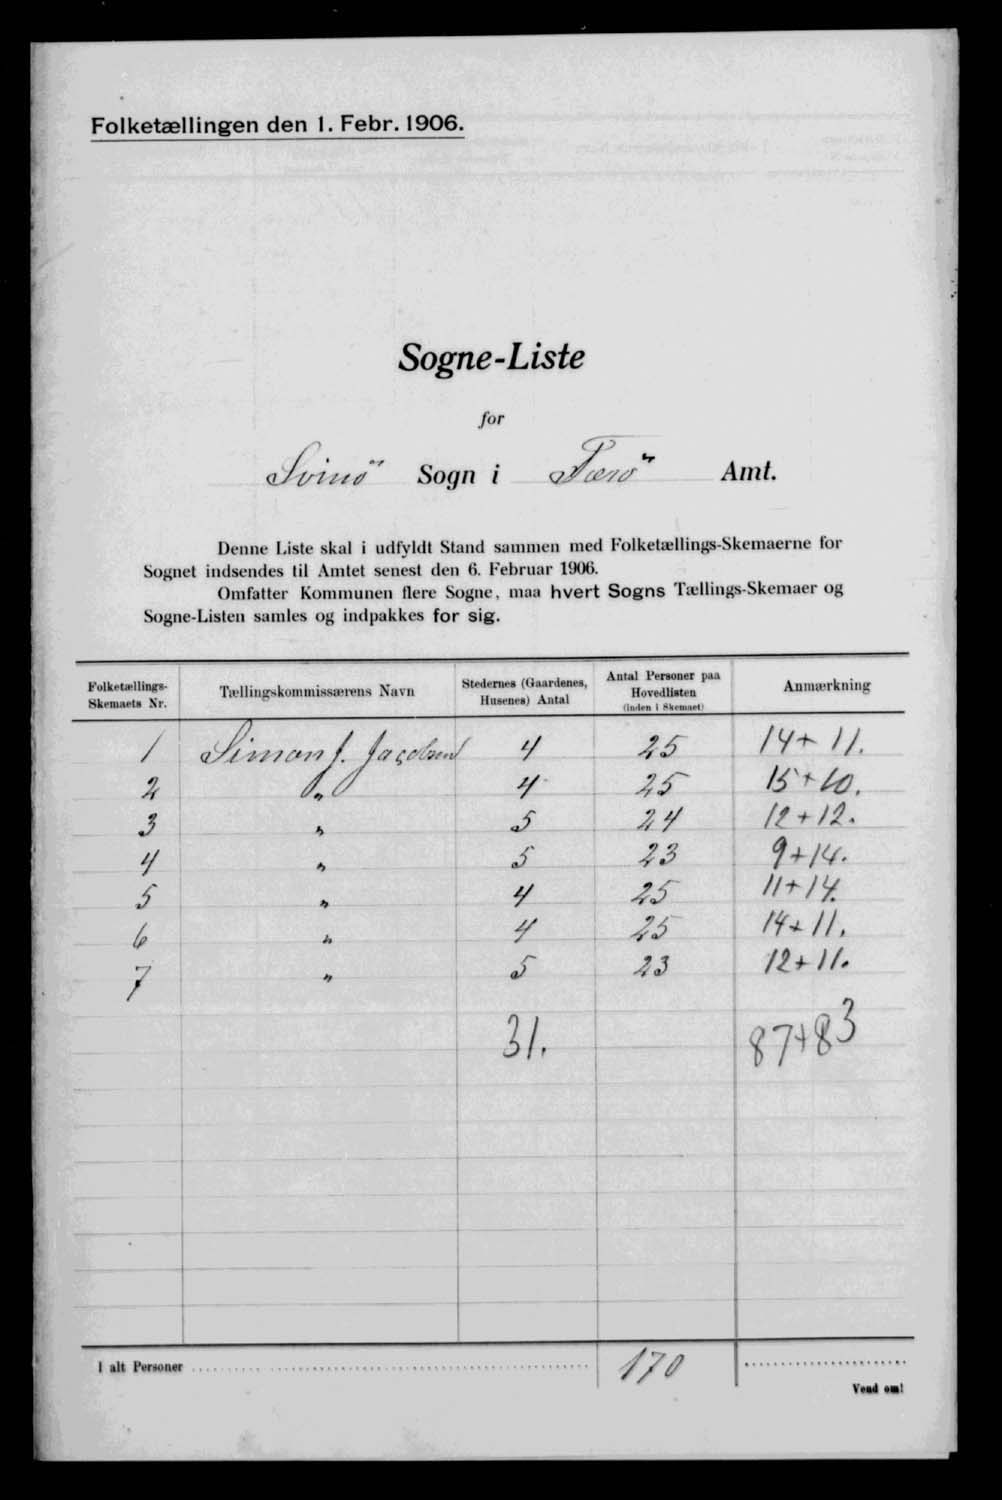 Folketællingen den 1. Febr. 1906.
Sogne-Liste
for
Svinö Sogn i Færö Amt.
Denne Liste skal i udfyldt Stand sammen med Folketællings-Skemaerne for
Sognet indsendes til Amtet senest den 6. Februar 1906.
Omfatter Kommunen flere Sogne, maa hvert Sogns Tællings-Skemaer og
Sogne-Listen samles og indpakkes for sig.
Folketællings-Skemaets Nr. Tællingskommissærens Navn Stedernes (Gaardenes, Husenes) Antal Antal Personer paa Hovedlisten (inden i Skemaet) Anmærkning
1 Simon J. Jacobsen 4 25 14+11.
2 " 4 25 15+10.
3 " 5 24 12+12.
4 " 5 23 9+14.
5 " 4 25 11+14.
6 " 4 25 14+11.
7 " 5 23 12+11.
31. 87+83
I alt Personer 170
Vend om!